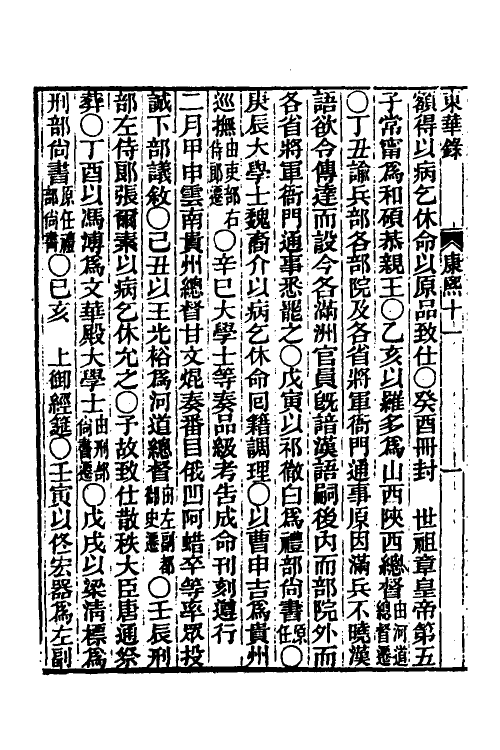 東華錄　康熙十一
額得以病乞休命以原品致仕〇癸酉冊封　世祖章皇帝第五
子常甯爲和碩恭親王〇乙亥以羅多爲山西陝西總督由河道總督遷
〇丁丑諭兵部各部院及各省將軍衙門通事原因滿兵不曉漢
語欲令傳達而設今各滿洲官員旣諳漢語嗣後內而部院外而
各省將軍衙門通事悉罷之〇戊寅以祁徹白爲禮部尙書原任〇
庚辰大學士魏裔介以病乞休命囘籍調理〇以曹申吉爲貴州
巡撫由吏部右侍郞遷〇辛巳大學士等奏品級考告成命刊刻遵行
二月甲申雲南貴州總督甘文焜奏番目俄凹阿蜡卒等率眾投
誠下部議敘〇己丑以王光裕爲河道總督由左副都御史遷〇壬辰刑
部左侍郞張爾素以病乞休允之〇予故致仕散秩大臣唐通祭
葬〇丁酉以馮溥爲文華殿大學士由刑部尙書遷〇戊戌以梁淸標爲
刑部尙書原任禮部尙書〇己亥　上御經筵〇壬寅以佟宏器爲左副